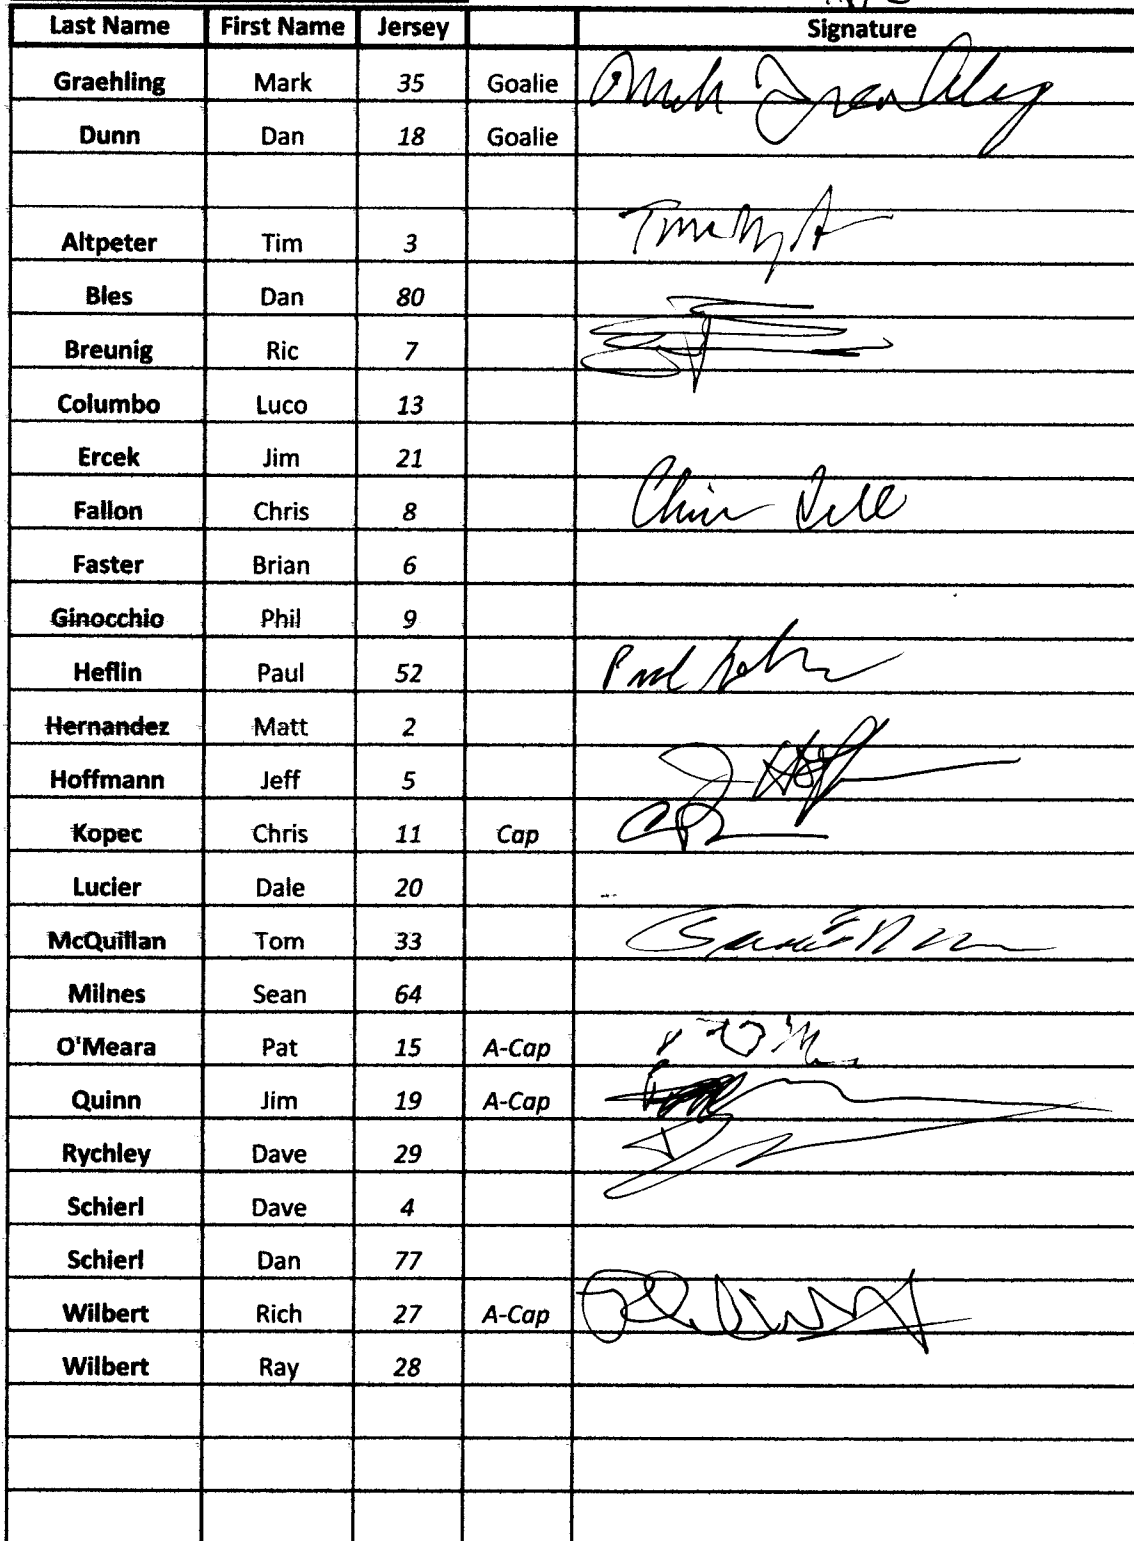 Last Name First Name Jersey Signature
Graehling Mark 35 Goalie
Dunn Dan 18 Goalie
Altpeter Tim 3
Bles Dan 80
Breunig Ric 7
Columbo Luco 13
Ercek Jim 21
Fallon Chris 8
Faster Brian 6
Ginocchio Phil 9
Heflin Paul 52 Paul
Hernandez Matt 2
Hoffmann Jeff 5
Kopec Chris 11 Cap
Lucier Dale 20
McQuillan Tom 33
Milnes Sean 64
O'Meara Pat 15 A-Cap
Quinn Jim 19 A-Cap
Rychley Dave 29
Schierl Dave 4
Schierl Dan 77
Wilbert Rich 27 A-Cap
Wilbert Ray 28